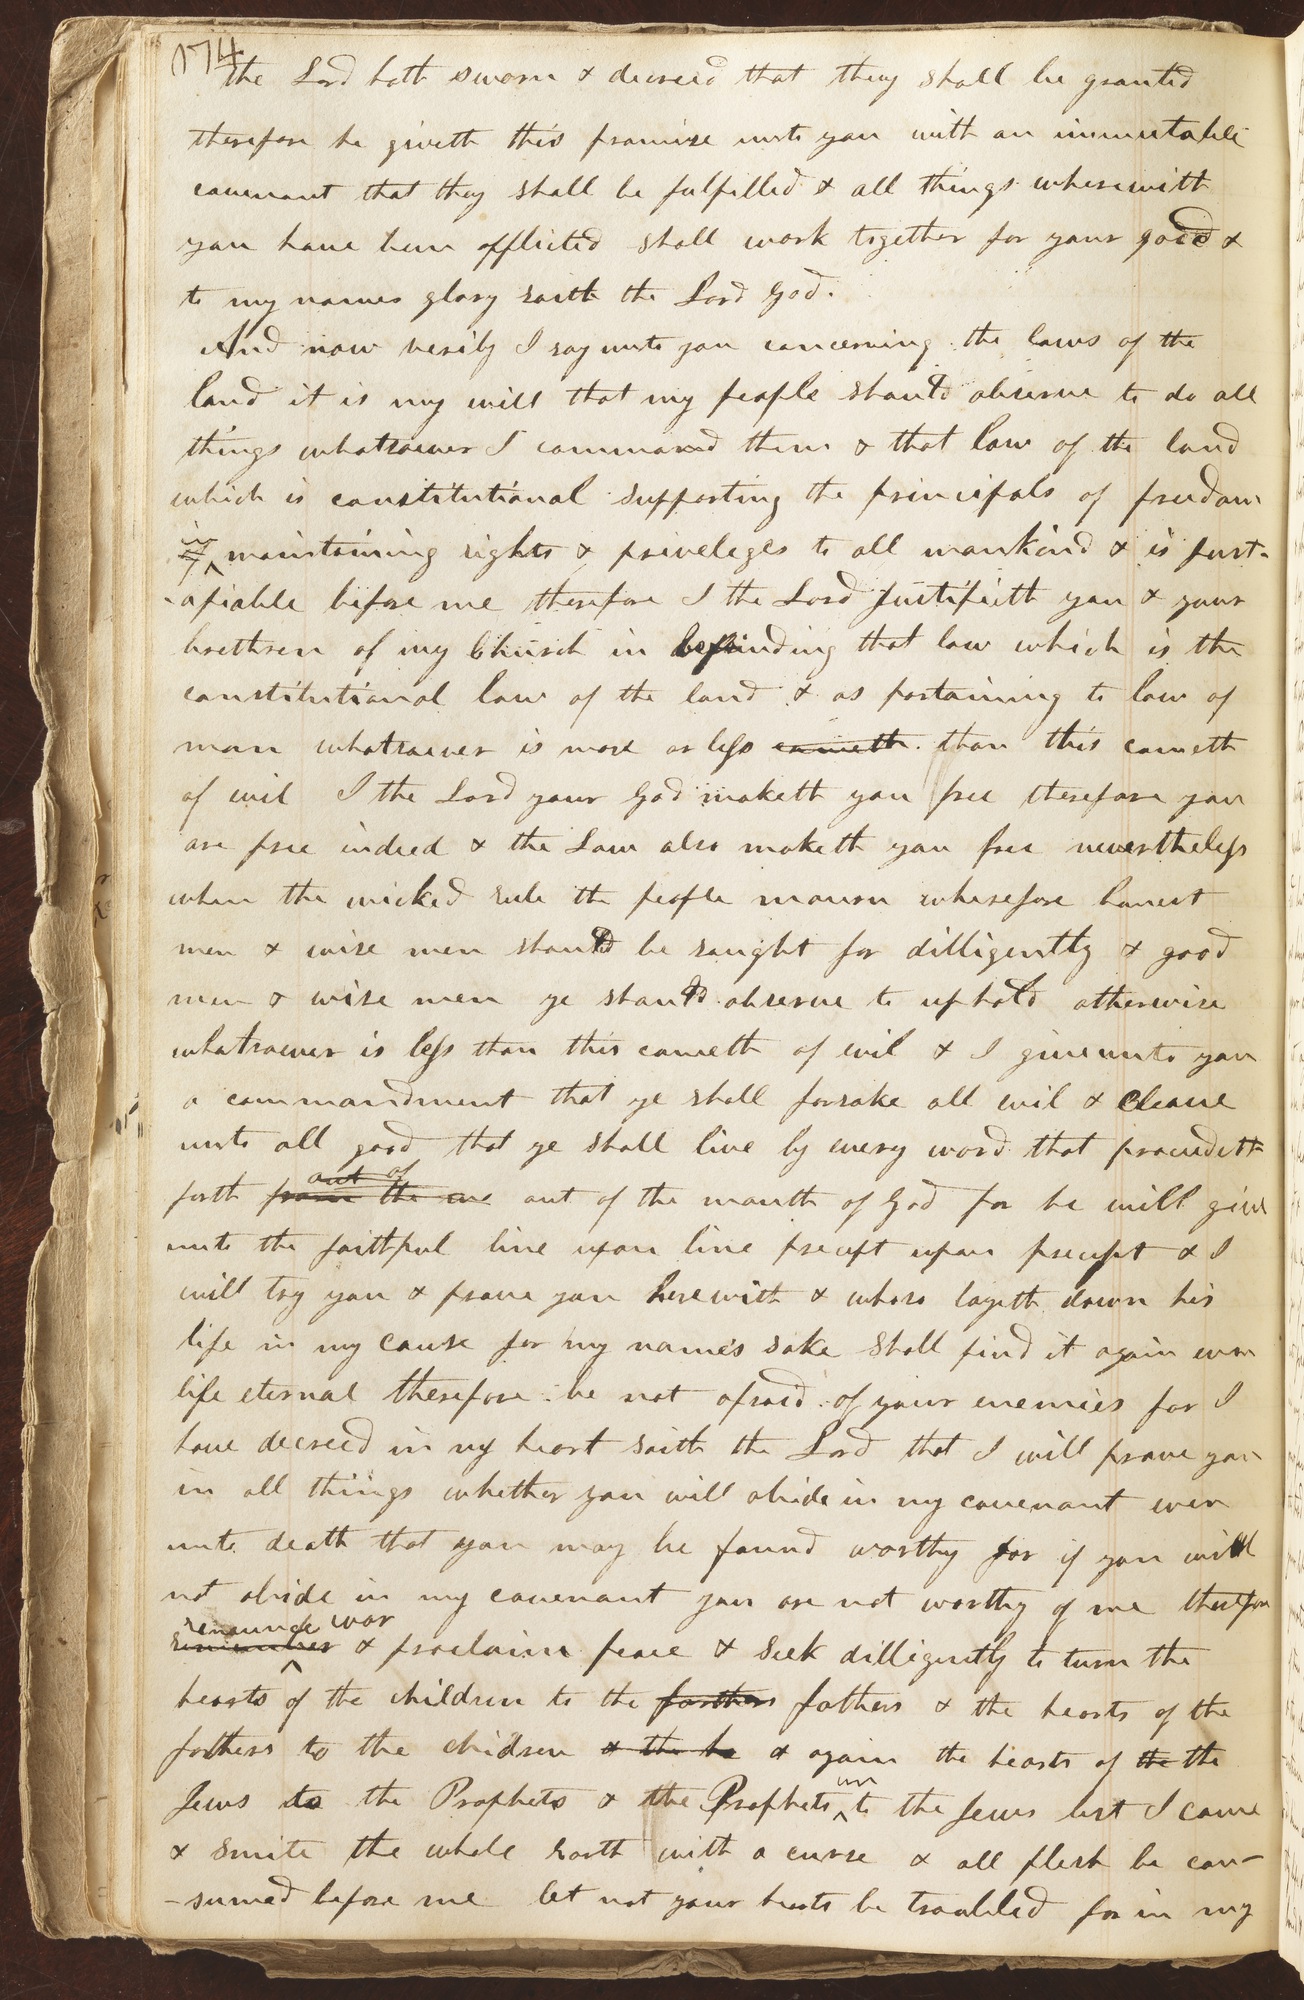 174
the Lord hath sworn & decreed that they shall be granted
therefore he giveth this promise unto you with an immutable
covenant that they shall be fulfilled & all things wherewith
you have been afflicted shall work together for your good &
to my names glory saith the Lord God.
And now verily I say unto you concerning the laws of the
land it is my will that my people should observe to do all
things whatsoever I command them & that law of the land
which is constitutional supporting the principals of freedom
in maintaining rights & priveleges to all mankind & is just-
-afiable before me therefore I the Lord Justifieth you & your
brethren of my Church in befrinding that law which is the
constitutional law of the land & as pertaining to law of
man whatsoever is more or less cometh than this cometh
of evil I the Lord your God maketh you free therefore you
are free indeed & the Law also maketh you free nevertheless
when the wicked rule the people mourn wherefore honest
men & wise men should be saught for dilligently & good
men & wise men ye should observe to uphold otherwise
whatsoever is less than this cometh of evil & I give unto you
a commandment that ye shall forsake all evil & Cleave
unto all good that ye shall live by every word that proceedeth
out of
forth from the me out of the mouth of God for he will give
unto the faithful line upon line precept upon precept & I
will try you & prove you herewith & whoso layeth down his
life in my cause for my name's sake shall find it again even
life eternal therefore be not afraid of your enemies for I
have decreed in my heart saith the Lord that I will prove you
in all things whether you will abide in my covenant even
unto death that you may be found worthy for if you will
not abide in my covenant you are not worthy of me therefore
renounce war
remember & proclaim peace & seek dilligently to turn the
hearts of the children to the farthers fathers & the hearts of the
fathers to the chidren & the he & again the hearts of the the
Jews to the Prophets & the Prophets un to the Jews lest I come
& smite the whole earth with a curse & all flesh be con-
-sumed before me let not your hearts be troubled for in my